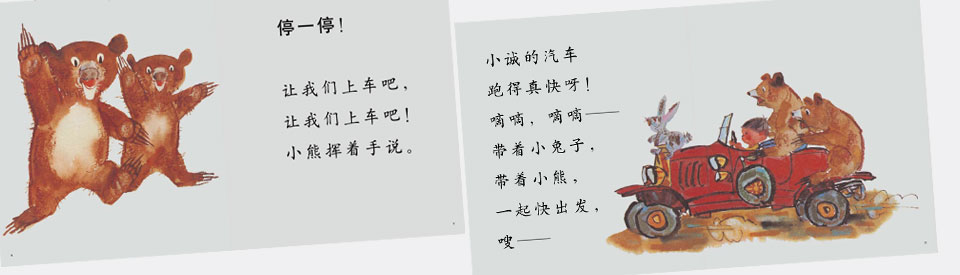 停一停！
让我们上车吧，
让我们上车吧！
小熊挥着手说。
小诚的汽车
跑得真快呀！
嘀嘀，嘀嘀——
带着小兔子，
带着小熊，
一起快出发，
嗖——